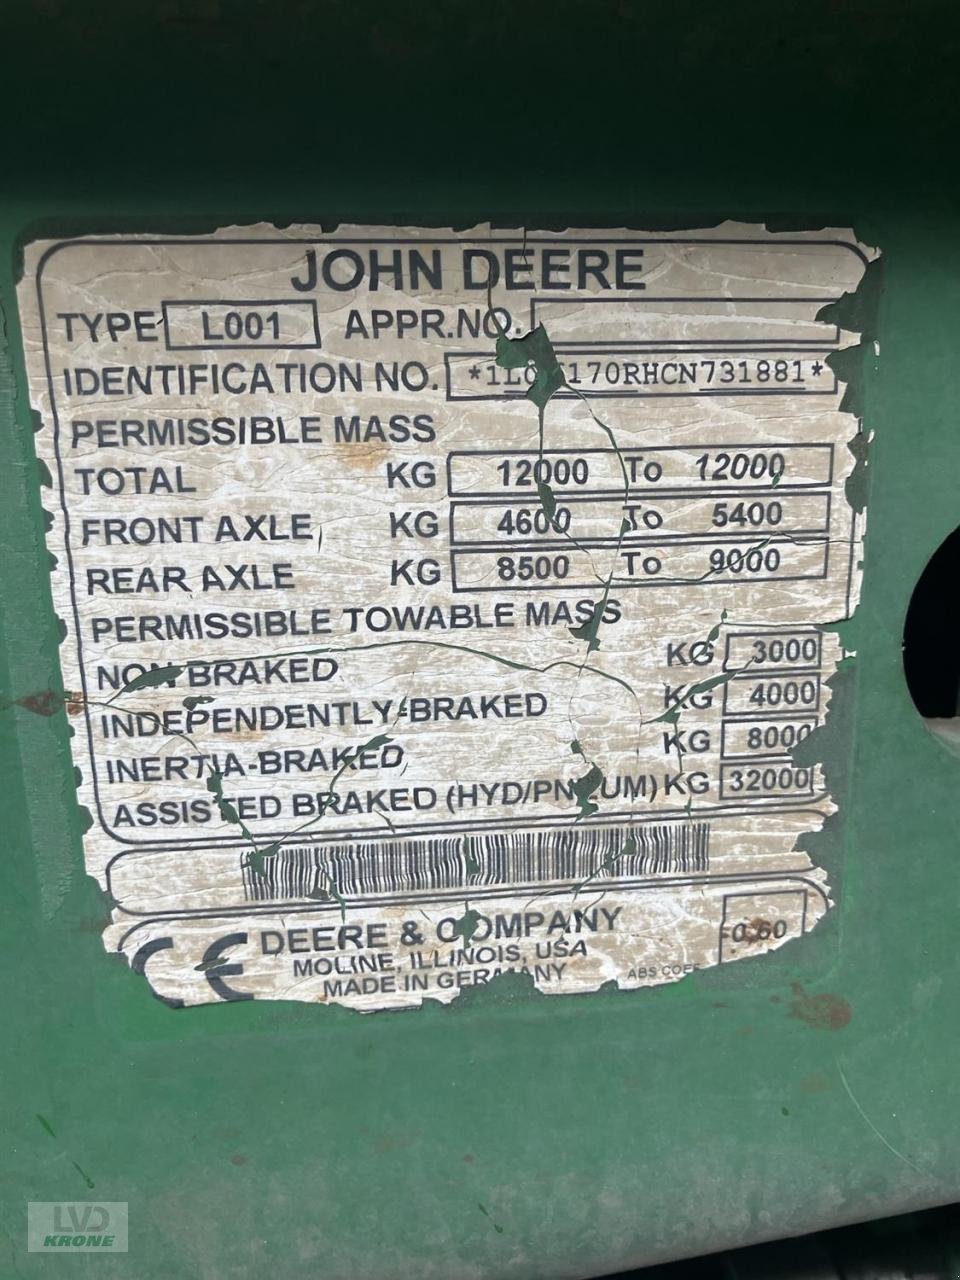 JOHN DEERE
TYPE L001 APPR.NO.
IDENTIFICATION NO.
PERMISSIBLE MASS
TOTAL KG 12000 To 12000
FRONT AXLE KG 4600 To 5400
REAR AXLE KG 8500 To 9000
PERMISSIBLE TOWABLE MASS
NON BRAKED KG 3000
INDEPENDENTLY-BRAKED KG 4000
INERTIA-BRAKED KG 8000
ASSISTED BRAKED (HYD/PNEUM) KG 32000
CE DEERE & COMPANY 0,60
MOLINE, ILLINOIS, USA
MADE IN GERMANY ABS COEF
LVD
KRONE